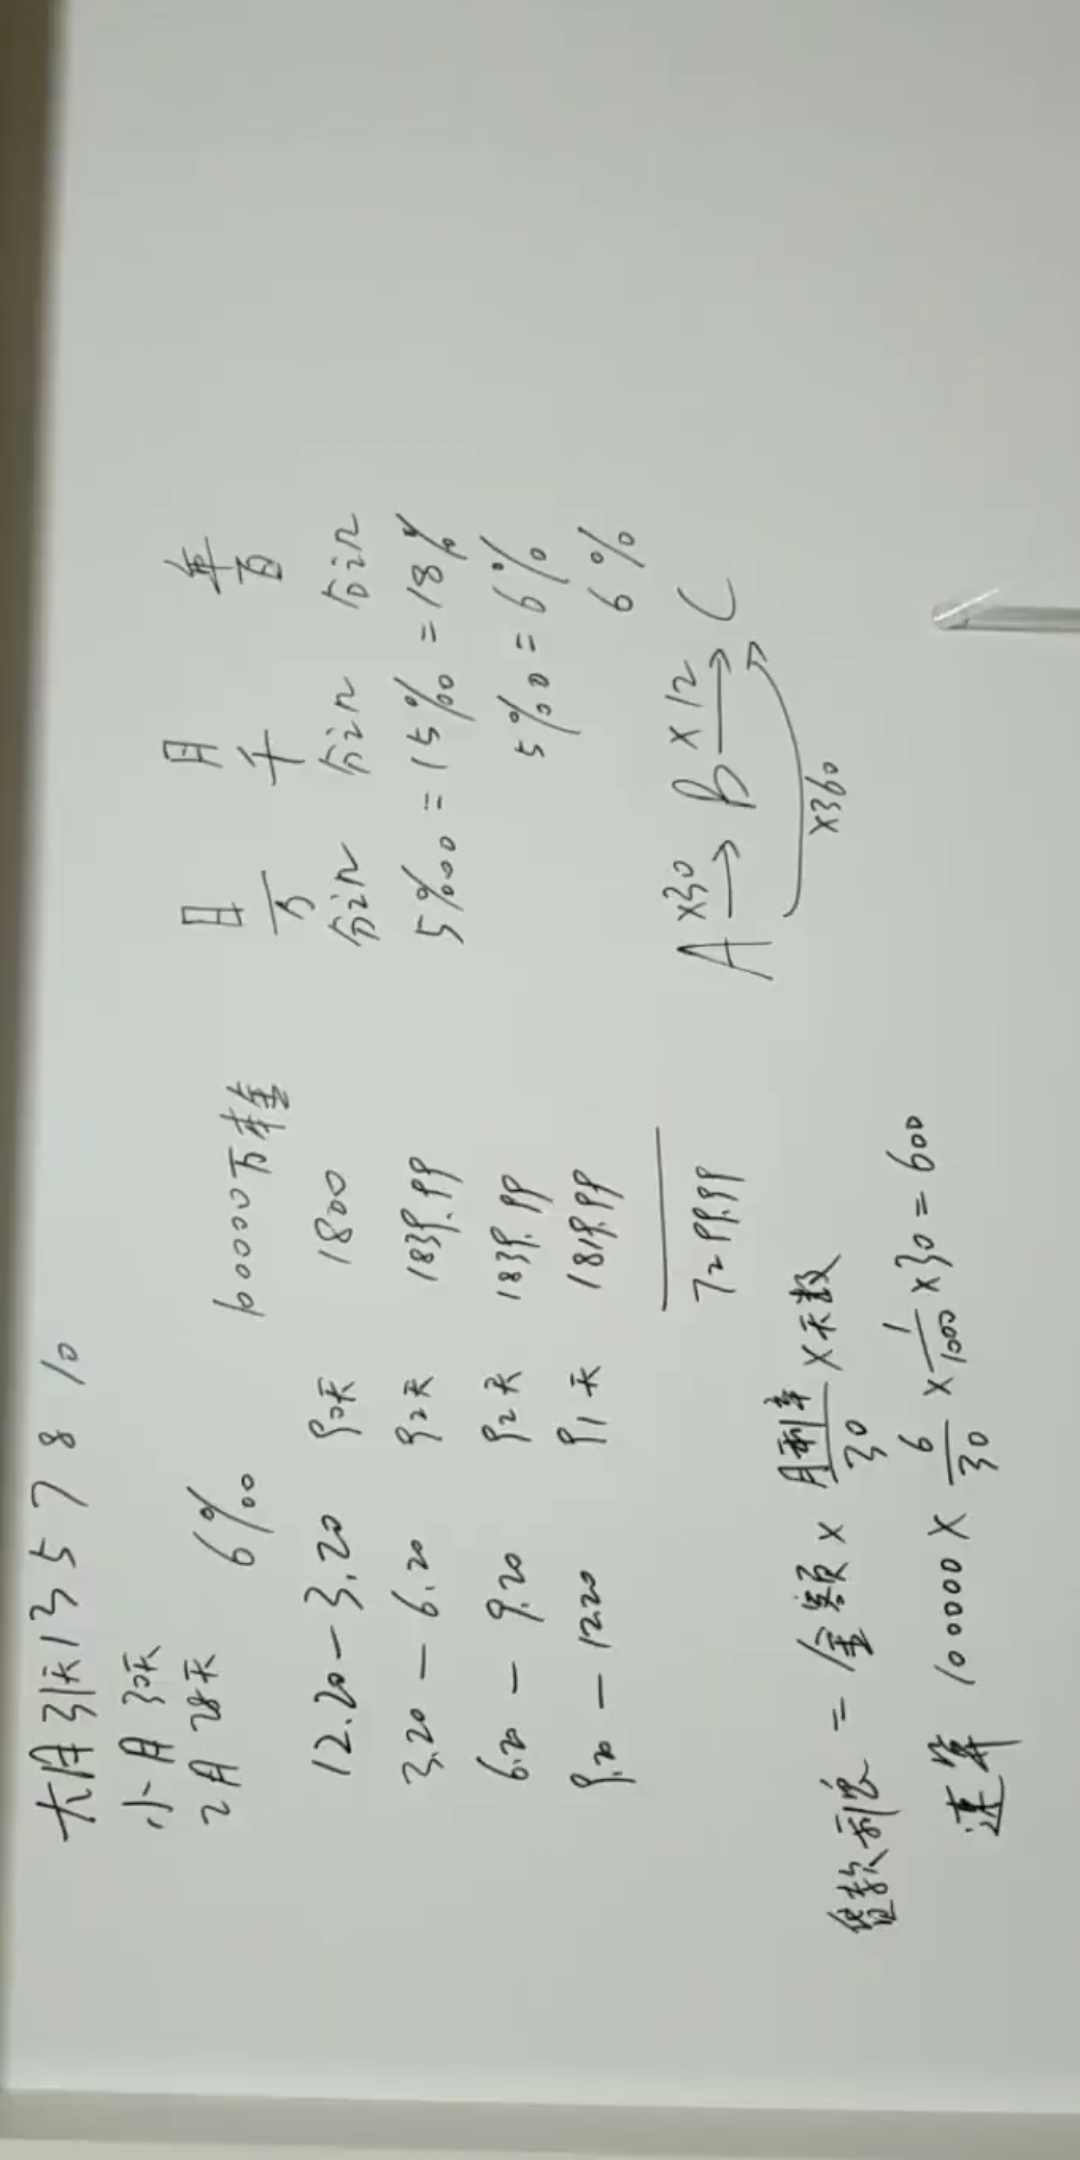 大月31天 1 3 5 7 8 10
小月 30天
2月 28天 6‰ 100000万本金
12.20-3.20 90天 1800
3.20-6.20 92天 1839.99
6.20-9.20 92天 1839.99
9.20-12.20 91天 1819.99
7299.99
贷款利息=金额×月利率/30×天数
速算 100000×6/30×1/1000×30=600
日 月 年
万 千 百
分之几 分之几 分之几
5‱=15‰=18%
5‰=6%
6%
A ×30→ B ×12→ C
×360